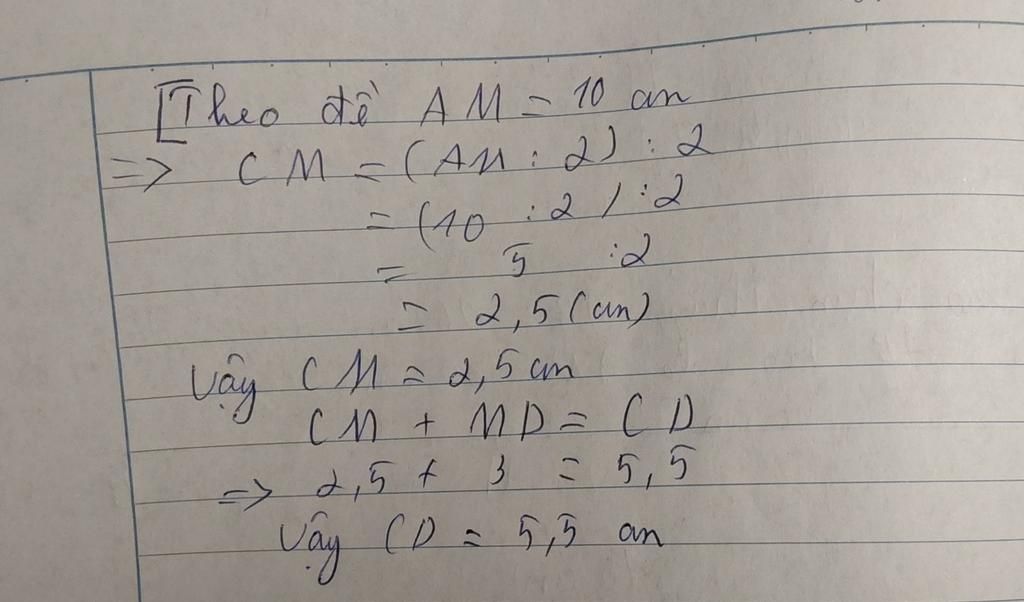 Theo đề AM = 10 cm
=> CM = (AM : 2) : 2
= (10 : 2) : 2
= 5 : 2
= 2,5 (cm)
Vậy CM = 2,5 cm
CM + MD = CD
=> 2,5 + 3 = 5,5
Vậy CD = 5,5 cm